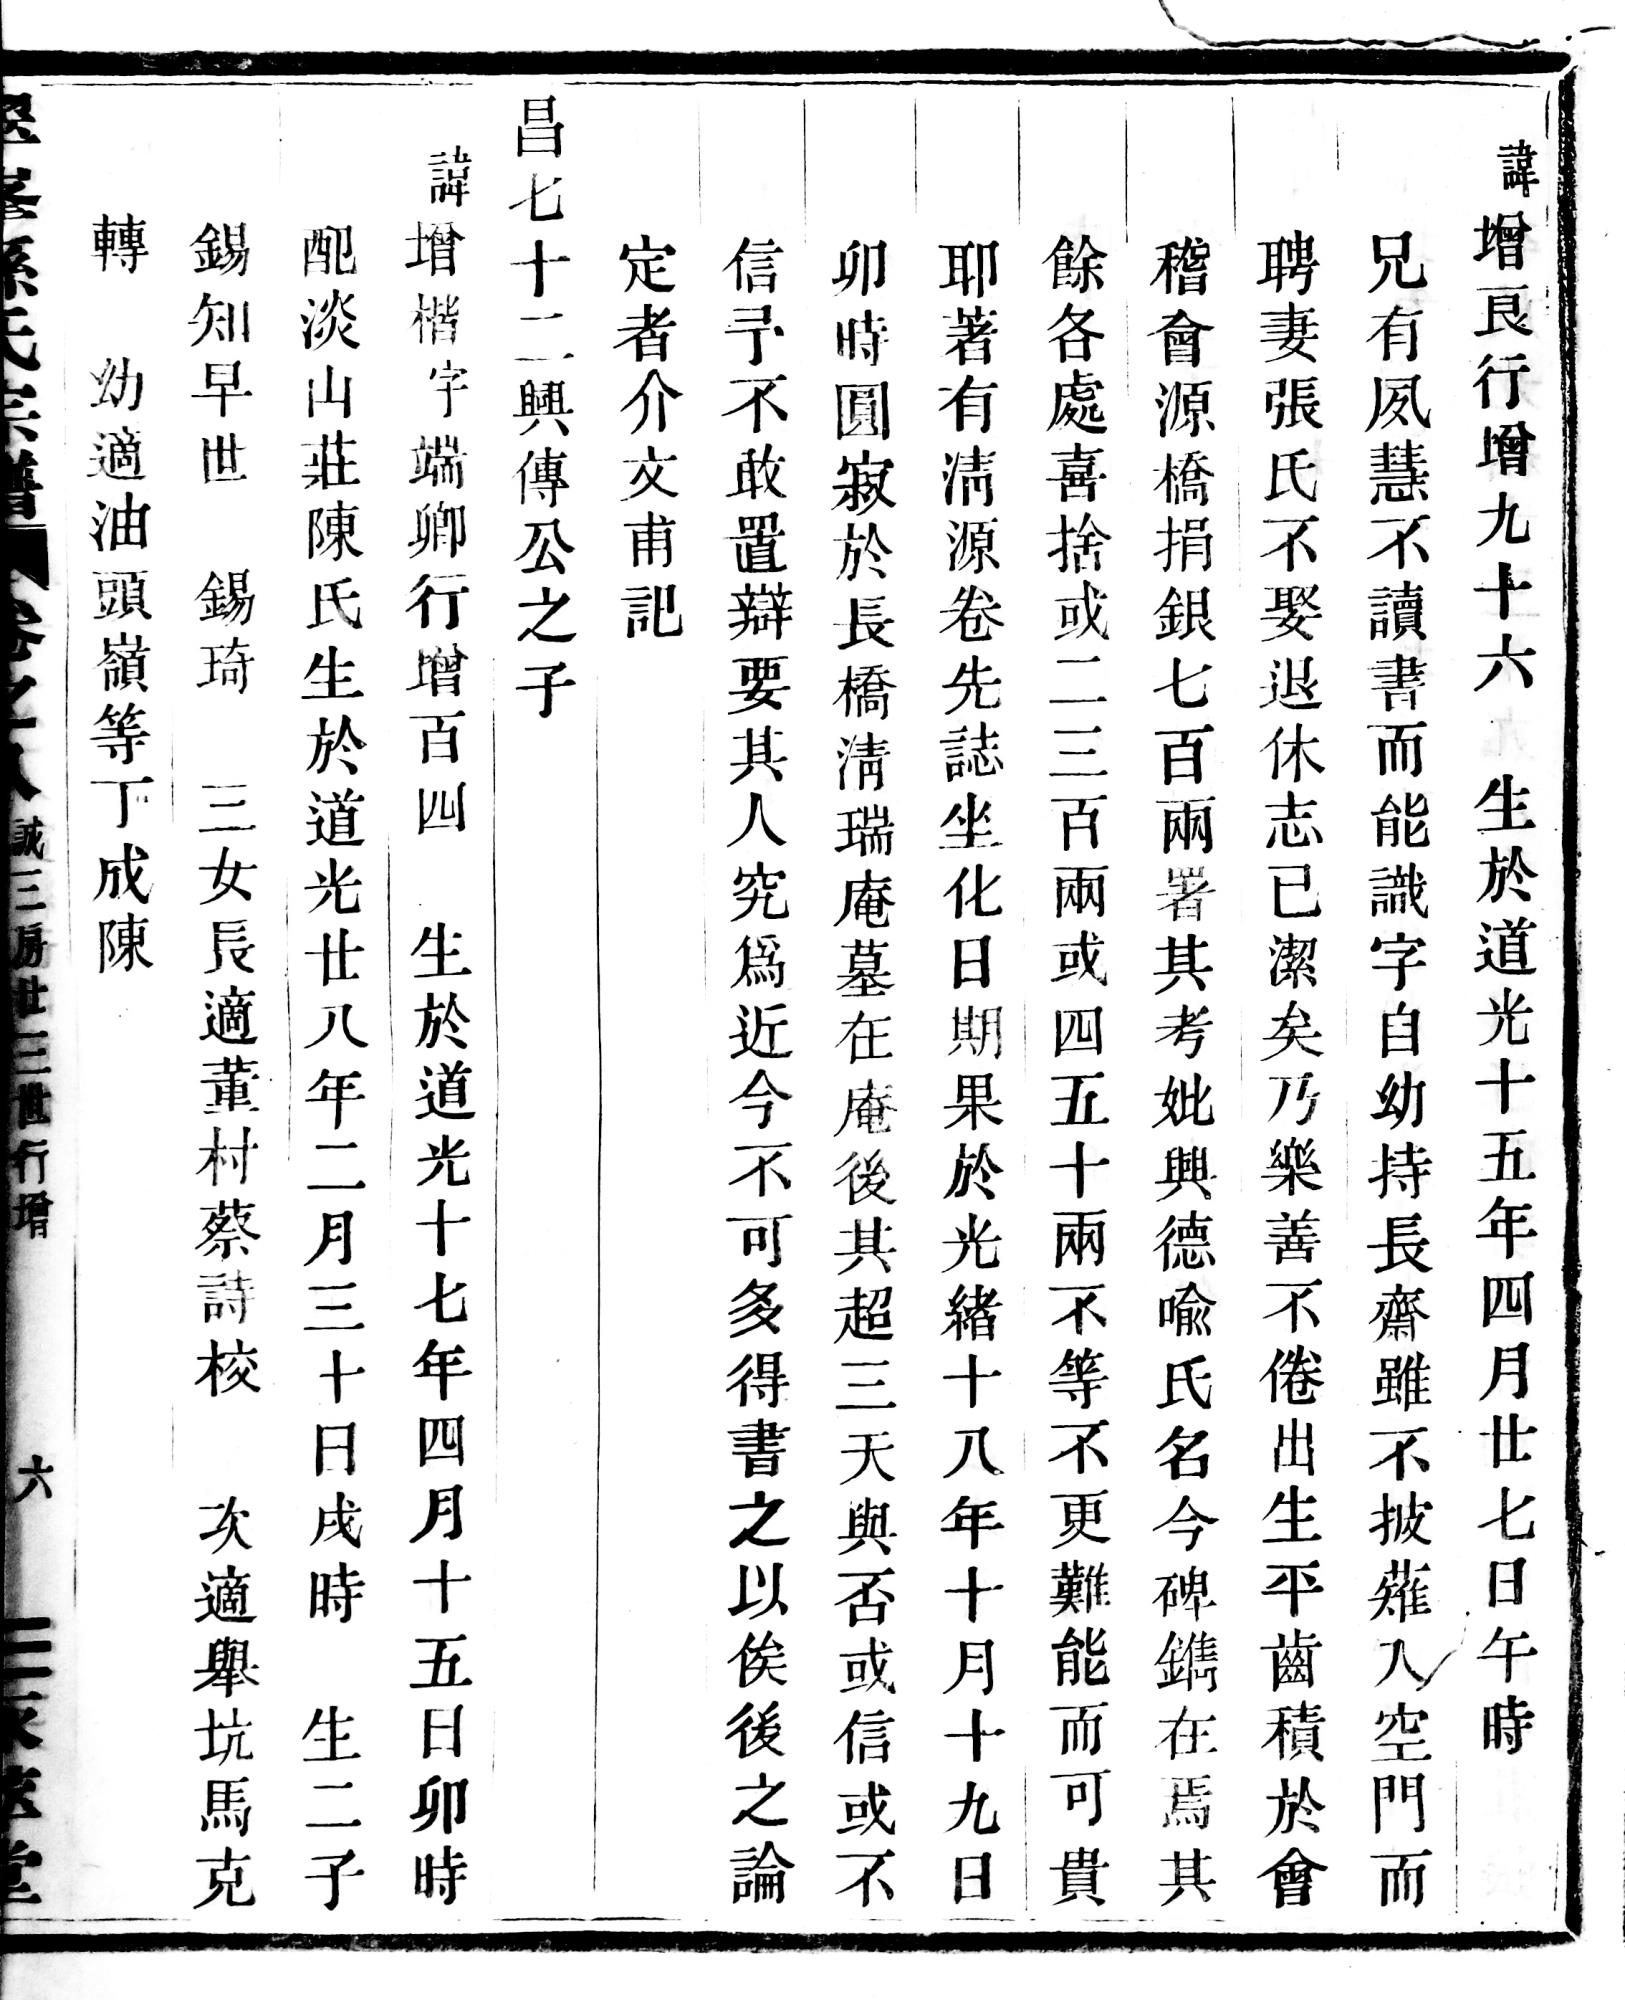 諱增良行增九十六　生於道光十五年四月廿七日午時
兄有夙慧不讀書而能識字自幼持長齋雖不披薙入空門而
聘妻張氏不娶退休志已潔矣乃樂善不倦出生平齒積於會
稽會源橋捐銀七百兩署其考妣興德喻氏名今碑鐫在焉其
餘各處喜捨或二三百兩或四五十兩不等不更難能而可貴
耶著有清源卷先誌坐化日期果於光緒十八年十月十九日
卯時圓寂於長橋清瑞庵墓在庵後其超三天與否或信或不
信予不敢置辯要其人究爲近今不可多得書之以俟後之論
定者介文甫記
昌七十二興傳公之子
諱增楷字端卿行增百四　生於道光十七年四月十五日卯時
配淡山莊陳氏生於道光廿八年二月三十日戌時　生二子
錫知早世　錫琦　三女長適董村蔡詩校　次適舉坑馬克
轉　幼適油頭嶺等丁成陳
孫氏宗譜　卷之八　誠三房廿三世行增　六　三永堂